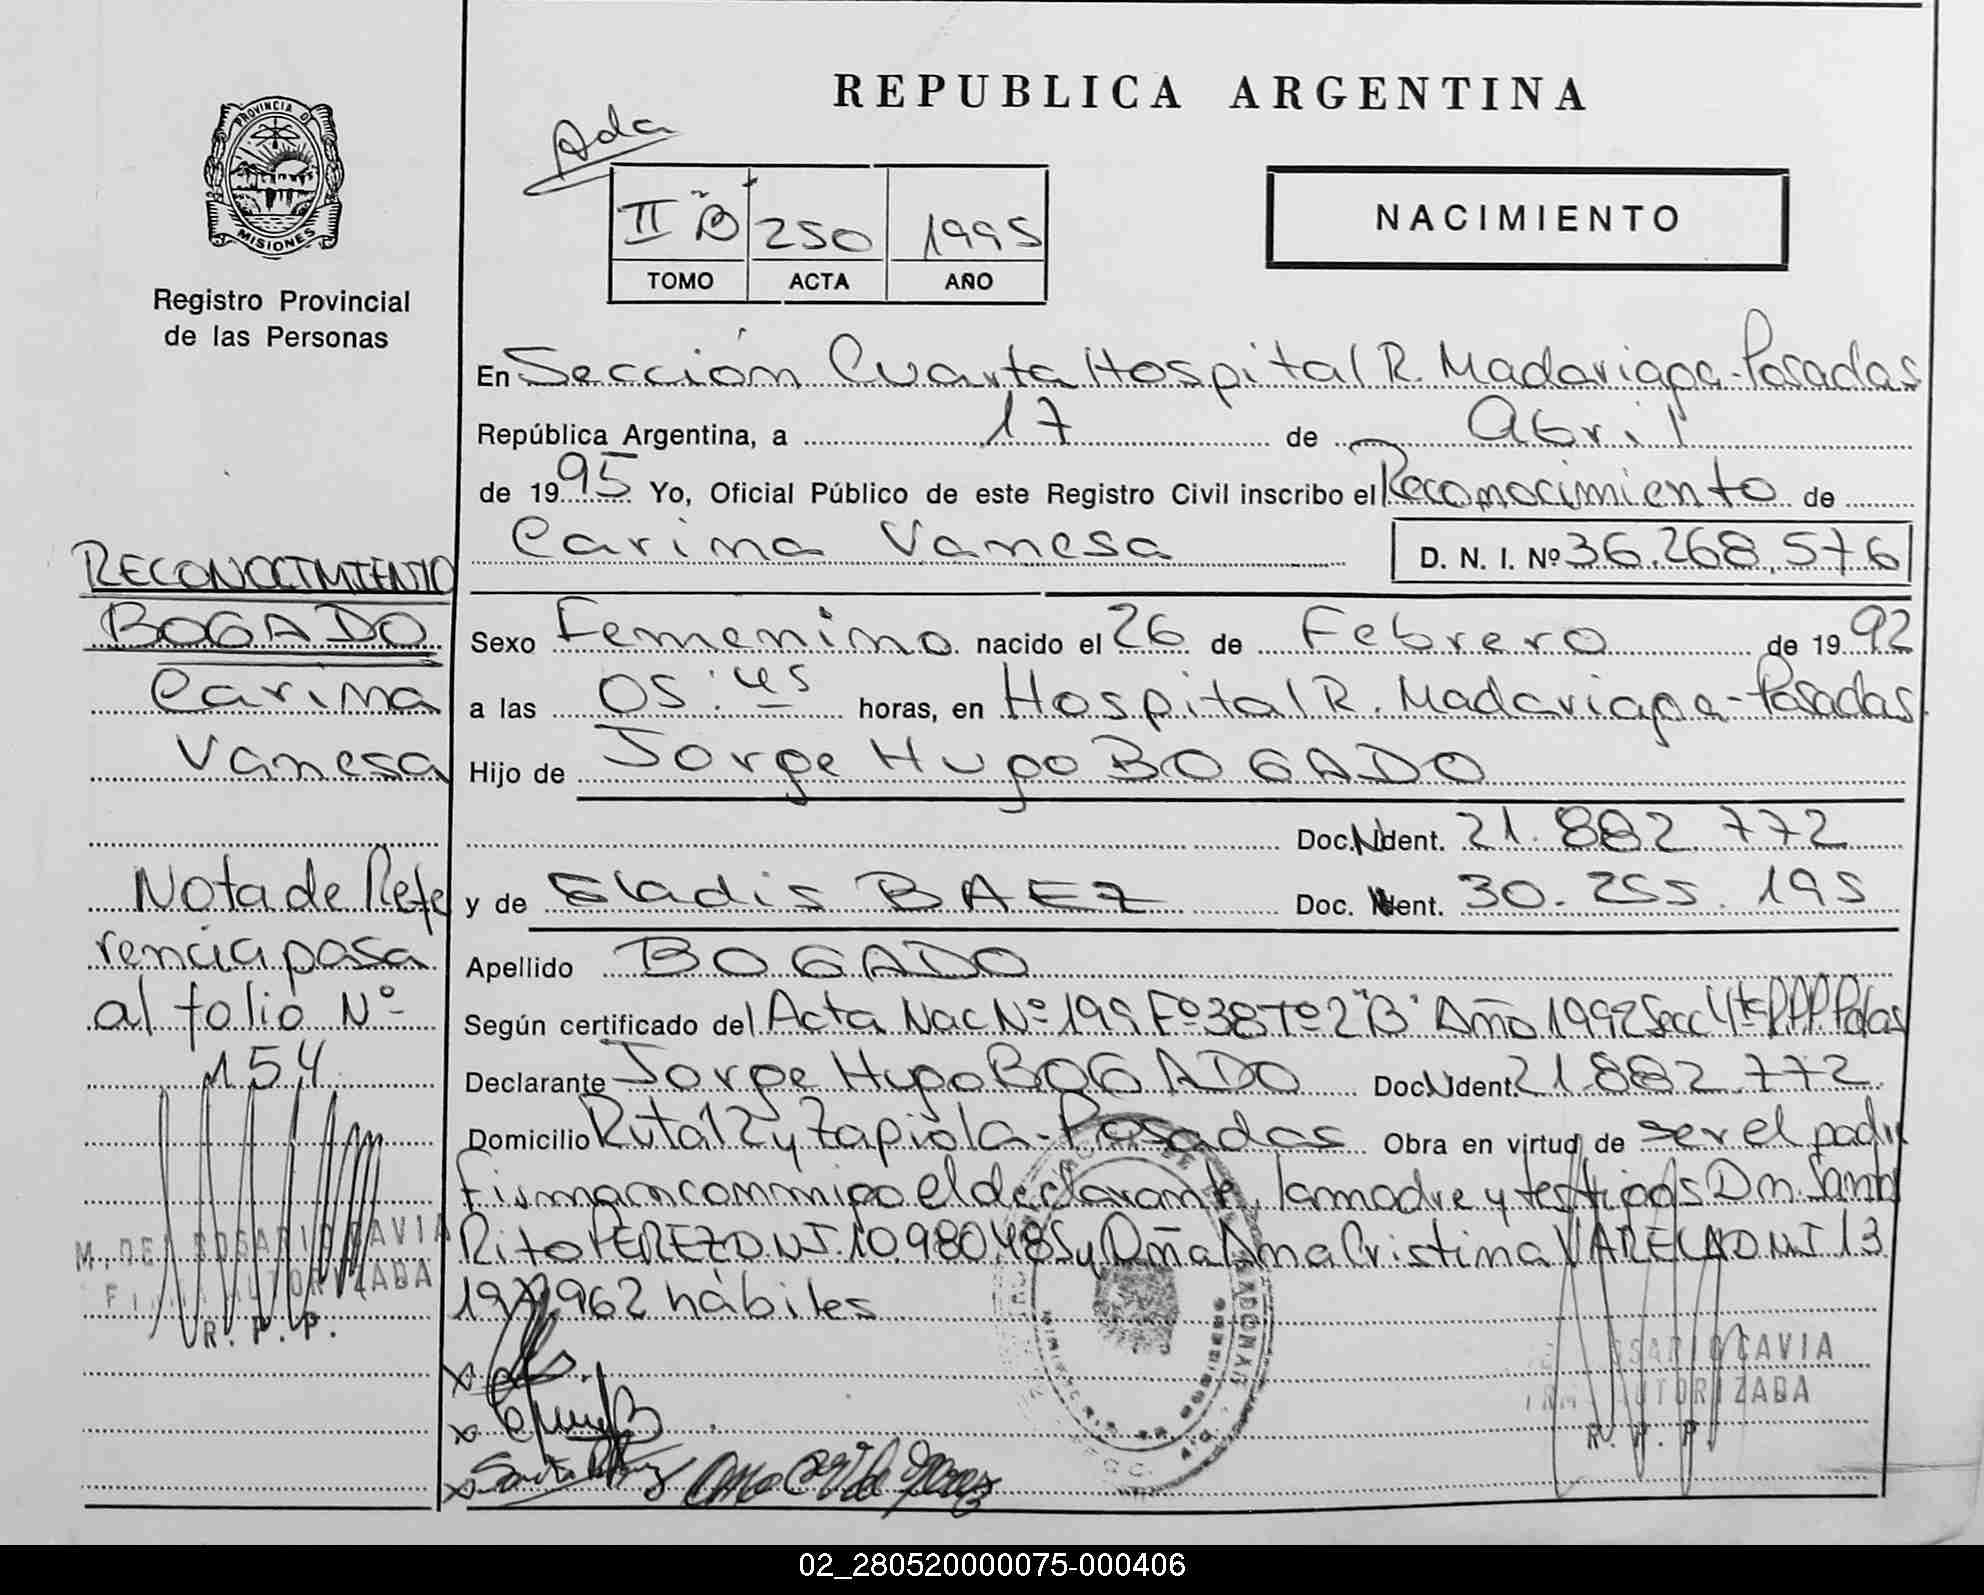 REPUBLICA ARGENTINA
Ada
PROVINCIA D
MISIONES
Registro Provincial
de las Personas
II "B" 250 1995
TOMO ACTA AÑO
NACIMIENTO
En Sección Cuarta Hospital R. Madariaga - Posadas
República Argentina, a 17 de Abril
de 1995 Yo, Oficial Público de este Registro Civil inscribo el Reconocimiento de
Carina Vanesa D. N. I. Nº 36.268.576
Sexo Femenino nacido el 26 de Febrero de 1992
a las 05:45 horas, en Hospital R. Madariaga - Posadas
Hijo de Jorge Hugo BOGADO
Doc. Ident. 21.882.772
y de Gladis BAEZ Doc. Ident. 30.255.195
Apellido BOGADO
Según certificado del Acta Nac Nº 199 Fº 38 Tº 2 "B" Año 1992 Secc 4ta RPP Pdas
Declarante Jorge Hugo BOGADO Doc Ident. 21.882.772
Domicilio Ruta 12 y Zapiola - Posadas Obra en virtud de ser el padre
firman conmigo el declarante, la madre y testigos Dn. Santo
Rito PEREZ D.N.I. 10.980.485 y Dña Ana Cristina VARELA DNI 13
962 hábiles
RECONOCIMIENTO
BOGADO
Carina
Vanesa
Nota de Refe
rencia pasa
al folio Nº
154
M. DEL ROSARIO CAVIA
FIRMA AUTORIZADA
R. P. P.
ROSARIO CAVIA
FIRMA AUTORIZADA
R. P. P.
02_280520000075-000406